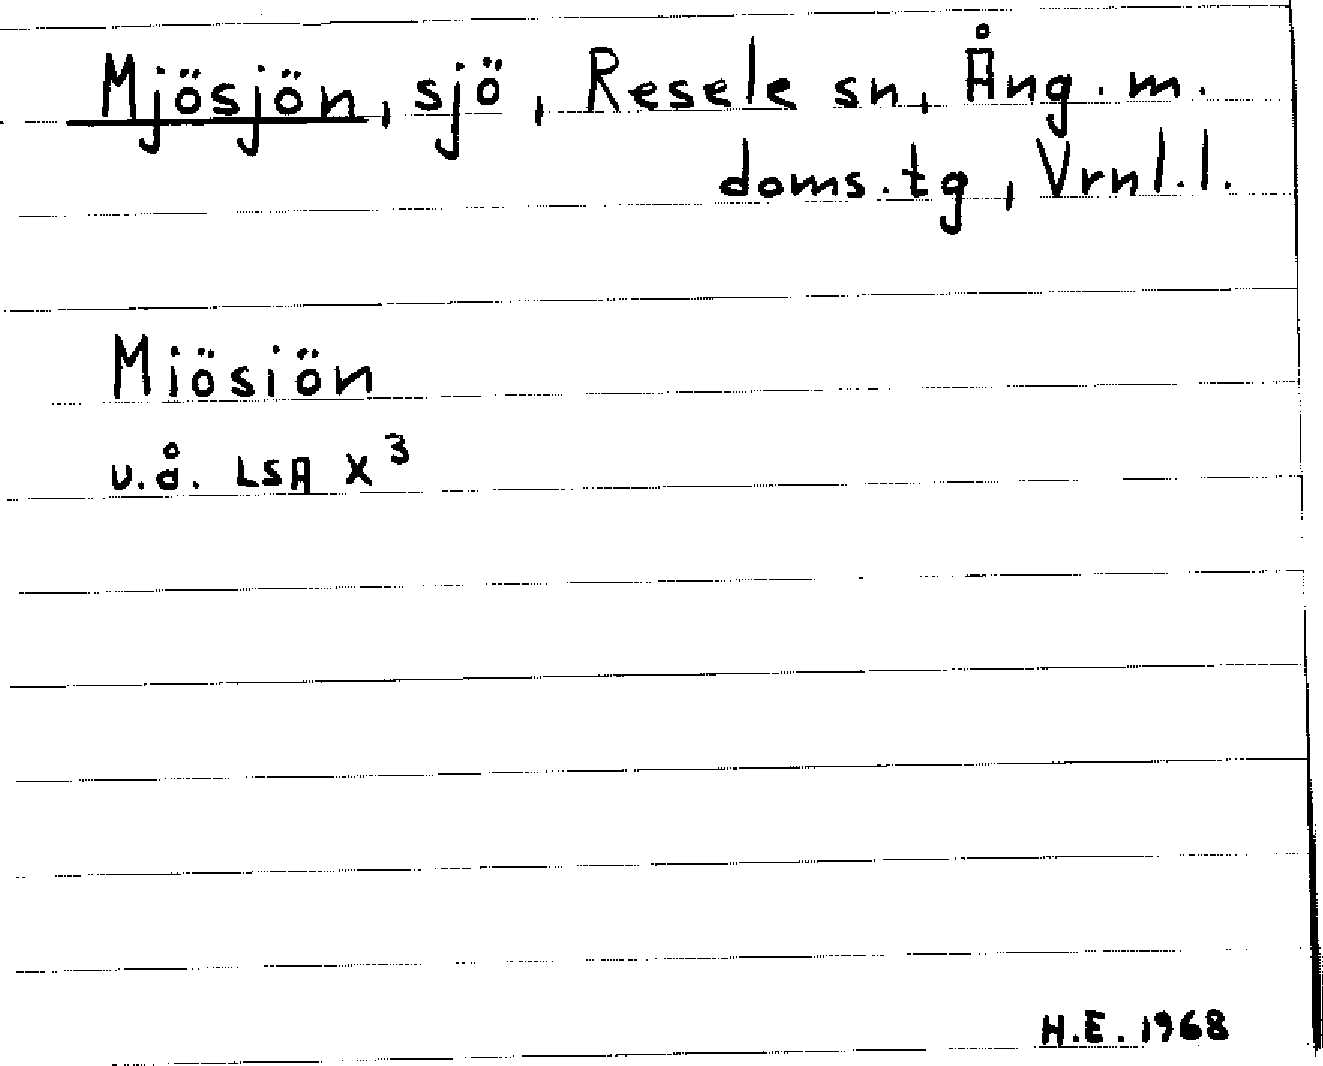 Mjösjön, sjö, Resele sn, Ång. m.
doms.tg, Vrnl.l.
Miösiön
u.å. LSA X³
H.E. 1968